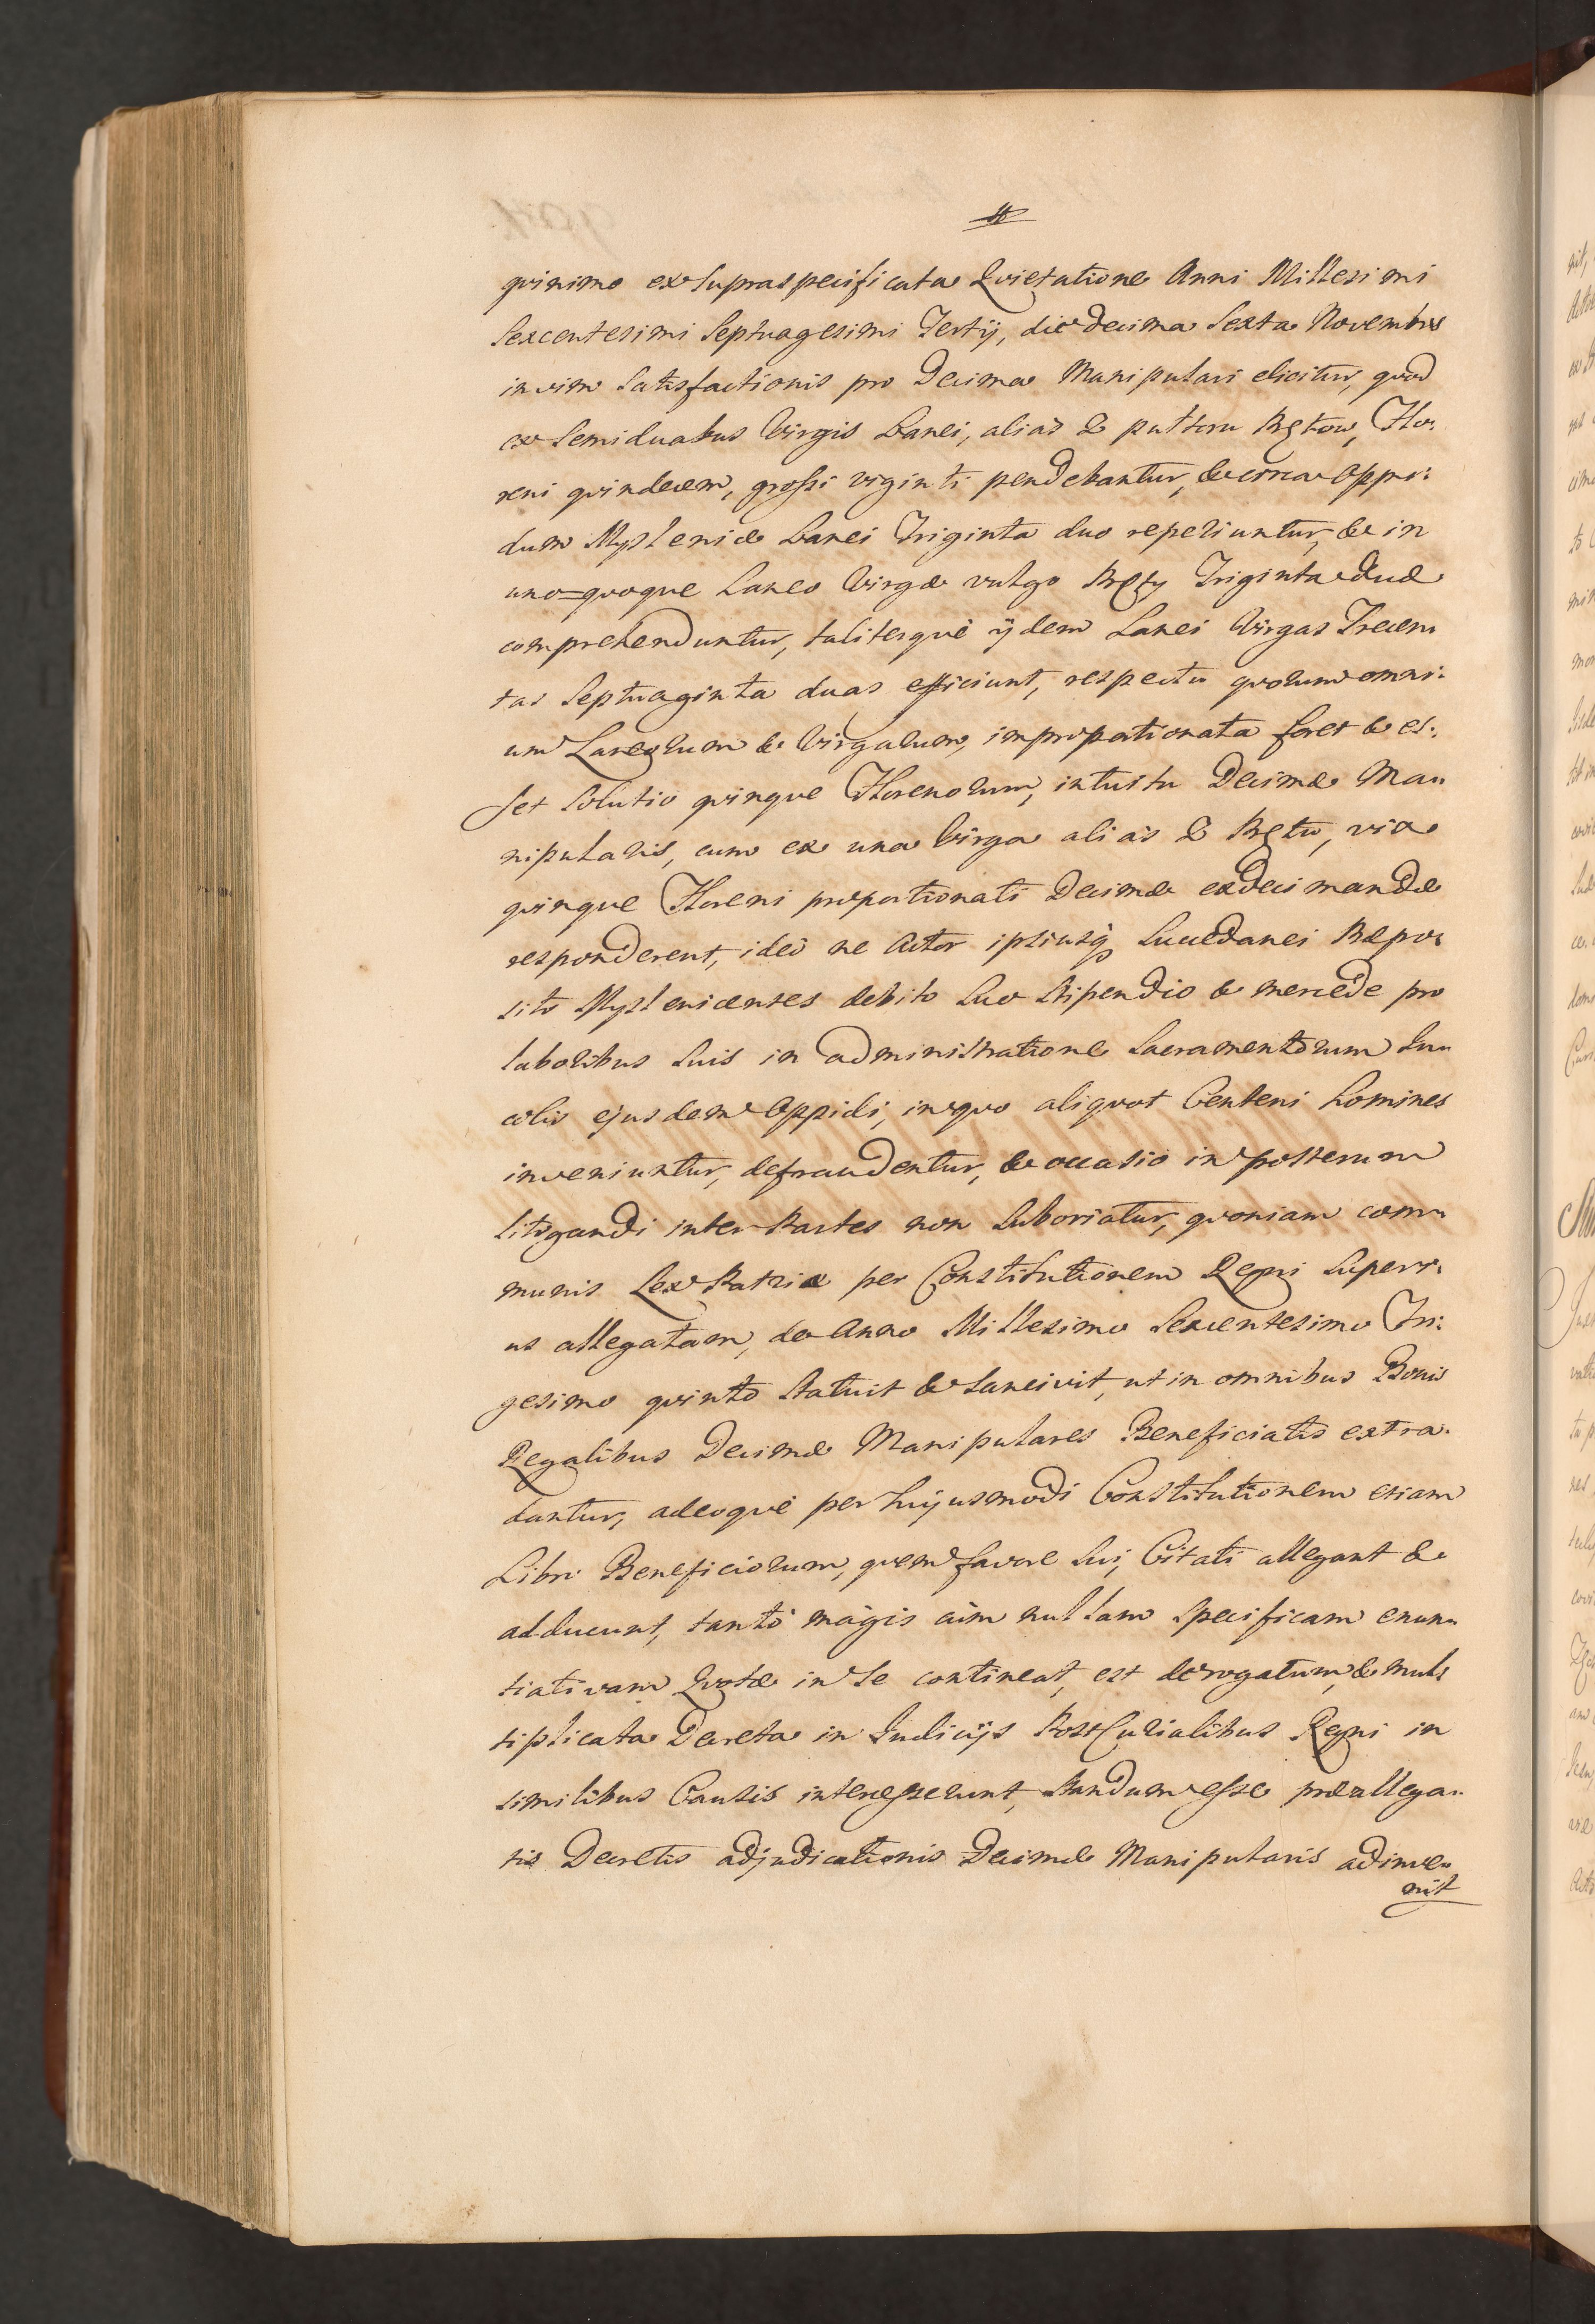 quinimo ex supraspecificata Quietatione Anni Millesimi
Sexcentesimi Septuagesimi Tertij, die decima Sexta Novembris
in vim Satisfactionis pro Decima Manipulari elicitur, quod
ex Semiduabus Virgis Lanei, alias z puttoru Prętow, Flo:
reni quindecem, grossi viginti pendebantur, & circa Oppi:
dum Myslenice Lanei Triginta duo reperiuntur, & in
uno=quoque Laneo Virgæ vulgo Pręty Triginta duæ
comprehenduntur, taliterque ijdem Lanei Virgas Trecen
tas Septuaginta duas efficiunt, respectu quorum omni:
um Laneorum & Virgarum, improportionata foret & es:
set Solutio quinque Florenorum, intuitu Decimæ Ma„
nipularis, cum ex una Virga alias z Prętu, vix
quinque Floreni proportionati Decimæ exdecimandæ
responderent, ideò ne Actor ipsiusq; Succedanei Præpo„
siti Myslenicenses debito suo Stipendio & mercede pro
laboribus suis in administratione Sacramentorum In„
colis ejusdem Oppidi, in quo aliquot Centeni homines
inveniuntur, defraudentur, & occasio in posterum
litigandi inter Partes non suboriatur, quoniam com„
munis Lex Patriæ per Constitutionem Regni superi„
us allegatam, de Anno Millesimo Sexcentesimo Tri:
gesimo quinto Statuit & Sancivit, ut in omnibus Bonis
Regalibus Decimæ Manipulares Beneficiatis extra„
dantur, adeoque per hujusmodi Constitutionem etiam
Libri Beneficiorum, quem favore sui, Citati allegant &
adducunt, tantò magis cum nullam specificam enun„
tiativam Quotæ in se contineat, est derogatum, & mul„
tiplicata Decreta in Judicijs Post Curialibus Regni in
similibus Causis intercesserunt, standum esse præallega„
tis Decretis adjudicationis Decimæ Manipularis adinve„
nit